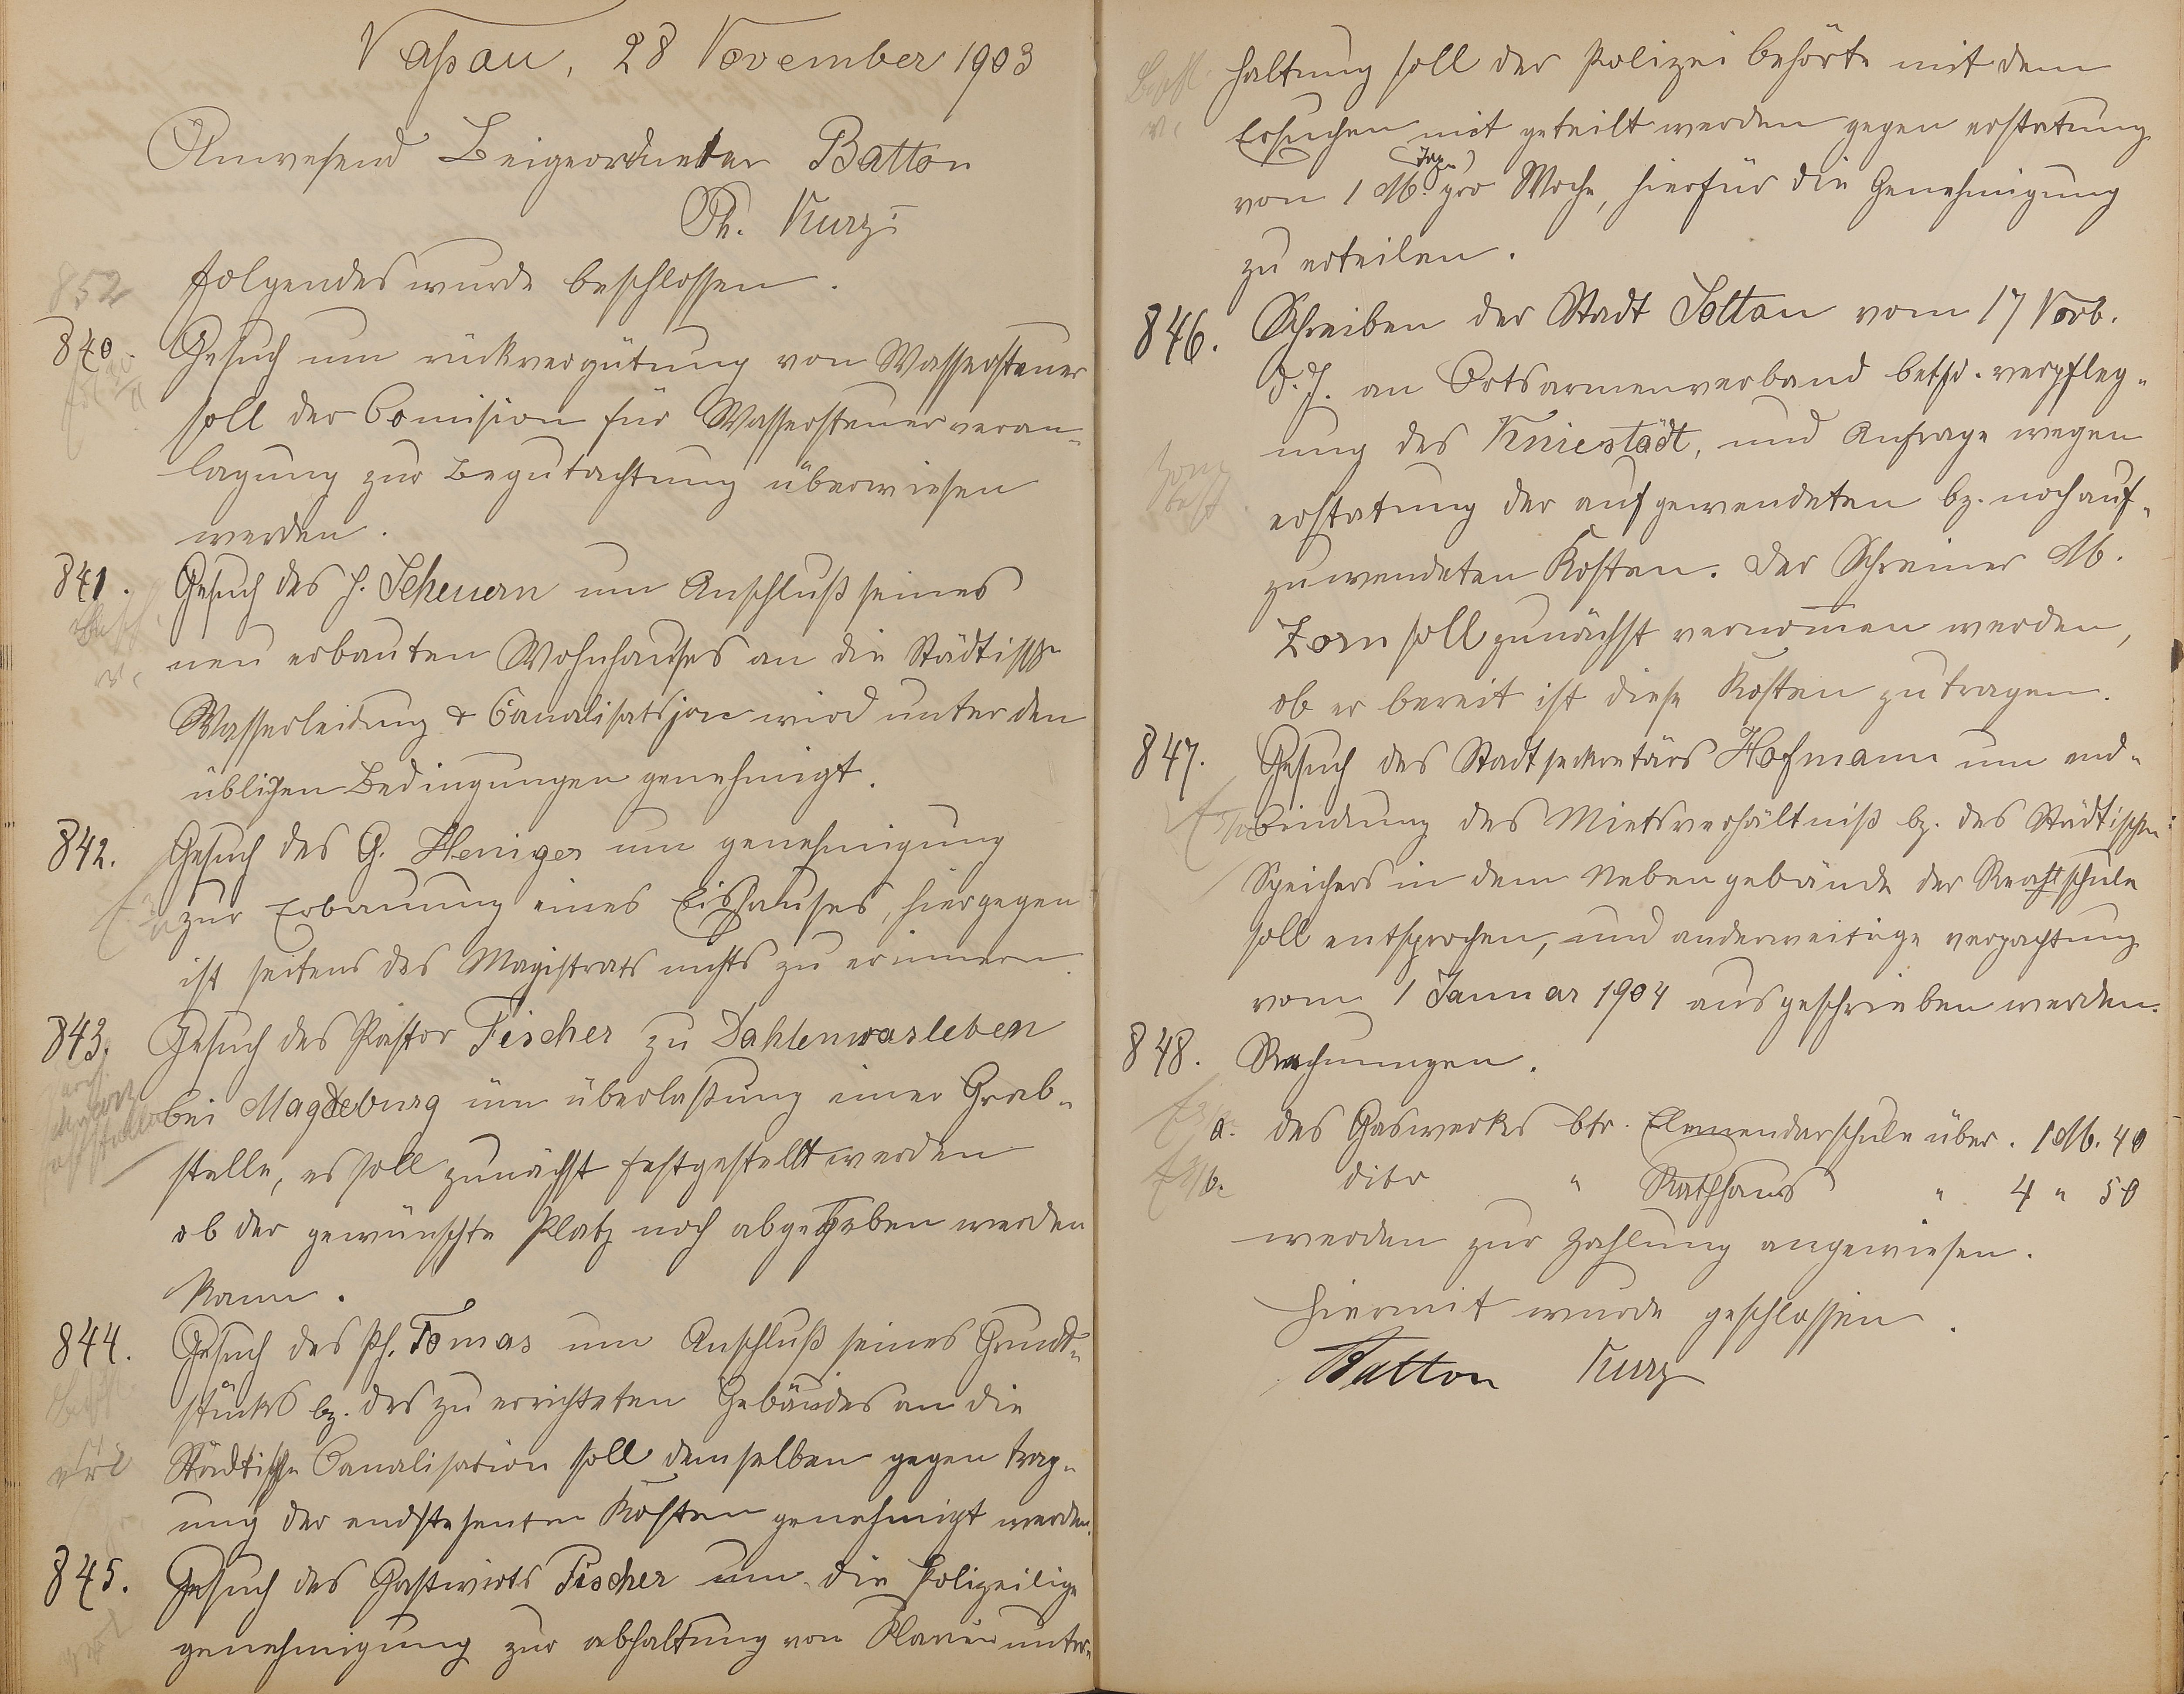 Naßau, 28 November 1903
Anwesend Beigeordneter Batton
Ph. Kurz I
folgendes wurde beschlossen.
852
840. Gesuch um rückvergütung von Wassersteuer
soll der Comision für Wassersteuerveran-
lagung zur Begutachtung überwiesen
werden.
841. Gesuch des H. Scheuern um Anschluß seines
neu erbauten Wohnhauses an die Städtische
Wasserleitung & Canalisatsjon wird unter den
üblichen Bedingungen genehmigt.
842. Gesuch des G. Heniger um genehmigung
zur Erbauung eines Eishauses, hiergegen
ist seitens des Magistrats nichts zu erinnern.
843. Gesuch des Pastor Fischer zu Dahlenwarsleben
bei Magdeburg um überlaßung einer Grab-
stelle, es soll zunächst festgestellt werden
ob der gewünschte Platz noch abgegeben werden
kann.
844. Gesuch des Ph. Tomas um Anschluß seines Grund-
stücks bz. des zu errichteten Gebäudes an die
Städtische Canalisation soll demselben gegen trag-
ung der endstehenten Kosten genehmigt werden.
845. Gesuch des Gastwirts Fischer um die Polizeilige
genehmigung zur abhaltung von Klavierunter-
haltung soll der Polizei behörte mit dem
Ersuchen mit geteilt werden gegen erstatung
von 1 M. pro Woche, hierfür die Genehmigung
zu erteilen.
846. Schreiben der Stadt Soltau vom 17 Novb.
d. J. an Ortsarmenverband betfd. verpfleg-
ung des Kniestädt, und Anfrage wegen
erstatung der aufgewendeten bz. noch auf-
zuwendeten Kosten. Der Schreiner M.
Zorn soll zunächst vernom̅en werden,
ob er bereit ist diese Kosten zu tragen.
847. Gesuch des Stadtsekretärs Hofmann um end-
bindung des Mietsverhältniß bz. des Städtischen
Speichers in dem Nebengebäude der Realschule
soll entsprochen, und anderweitige verpachtung
vom 1 Januar 1904 ausgeschrieben werden.
848. Rechnungen.
a. des Gaswerks btr. Elemendarschule über. 1 M. 40
b. dito " Rathhaus " 4 " 50
werden zur Zahlung angewiesen.
Hiermit wurde geschlossen.
Batton Kurz